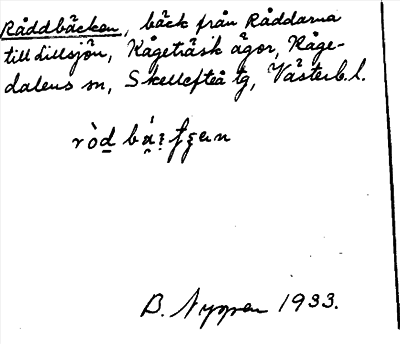 Råddbäcken, bäck från Råddarna
till Lillsjön, Kågeträsk ägor, Kåge-
dalens sn, Skellefteå tg, Västerb. l.
B. Nyman 1933.